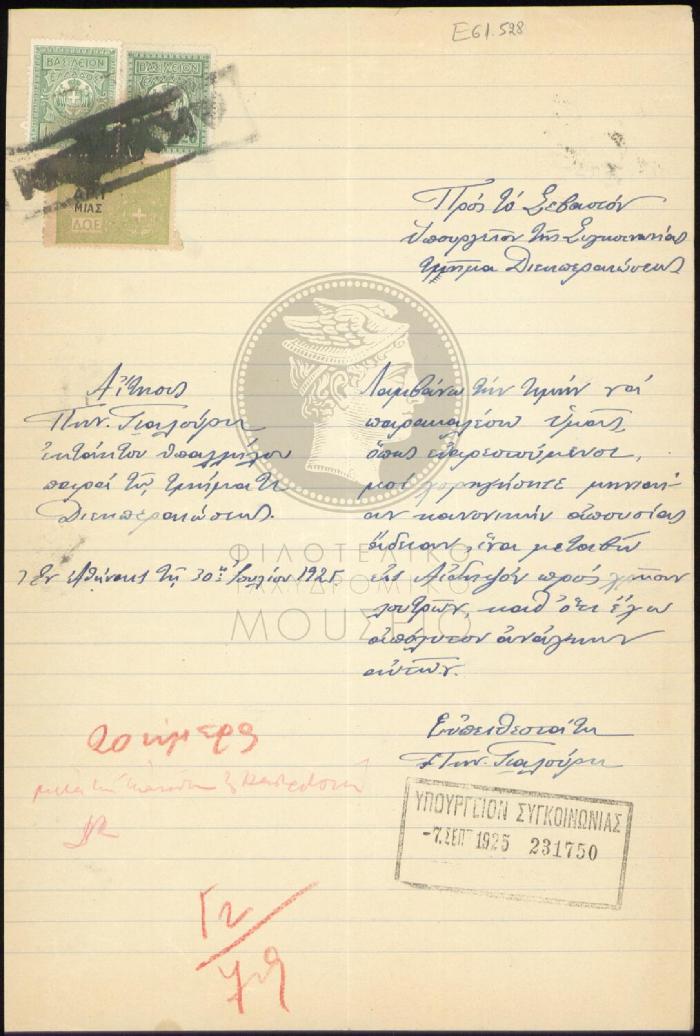 E61.528
ΒΑΣΙΛΕΙΟΝ
ΕΛΛΑΔΟΣ
ΒΑΣΙΛΕΙΟΝ
ΕΛΛΑΔΟΣ
20
ΔΡΧ
ΜΙΑΣ
ΔΟΕ
Πρός τό Σεβαστόν
Ὑπουργεῖον τῆς Συγκοινωνίας
τμῆμα Διεκπεραιώσεως
Αἴτησις
Πην. Γιαλούρη
ἐκτάκτου ὑπαλλήλου
παρά τῷ τμήματι
Διεκπεραιώσεως.
Ἐν Ἀθήναις τῇ 30ῃ Ἰουλίου 1925
Λαμβάνω τήν τιμήν νά
παρακαλέσω ὑμᾶς,
ὅπως εὐαρεστούμενοι,
μοί χορηγήσητε μηνιαί-
αν κανονικήν ἀπουσίας
ἄδειαν, ἵνα μεταβῶ
εἰς Αἰδηψόν πρός χρῆσιν
λουτρῶν, καθ' ὅτι ἔχω
ἀπόλυτον ἀνάγκην
αὐτῶν.
Εὐπειθεστάτη
Πην. Γιαλούρη
ΦΙΛΟΤΕΛΙΚΟ
ΤΑΧΥΔΡΟΜΙΚΟ
ΜΟΥΣΕΙΟ
20 ἡμέρας
ΥΠΟΥΡΓΕΙΟΝ ΣΥΓΚΟΙΝΩΝΙΑΣ
-7.ΣΕΠ 1925 231750
Γ2
79